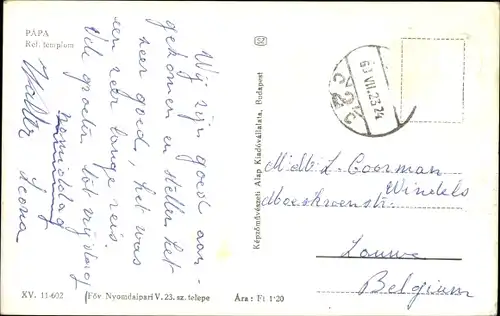 PÁPA
Ref. templom
Wij zijn goed aan-
gekomen en stellen het
zeer goed, het was
een zeer lange reis.
groeten tot vrijdag
namiddag
Walter Leona
XV. 11-602
Főv. Nyomdaipari V. 23. sz. telepe
Ára: Ft 1·20
Képzőművészeti Alap Kiadóvállalata, Budapest
VII. 23 24
L. Coorman
Windels
Moeskroenstr.
Lauwe
Belgium